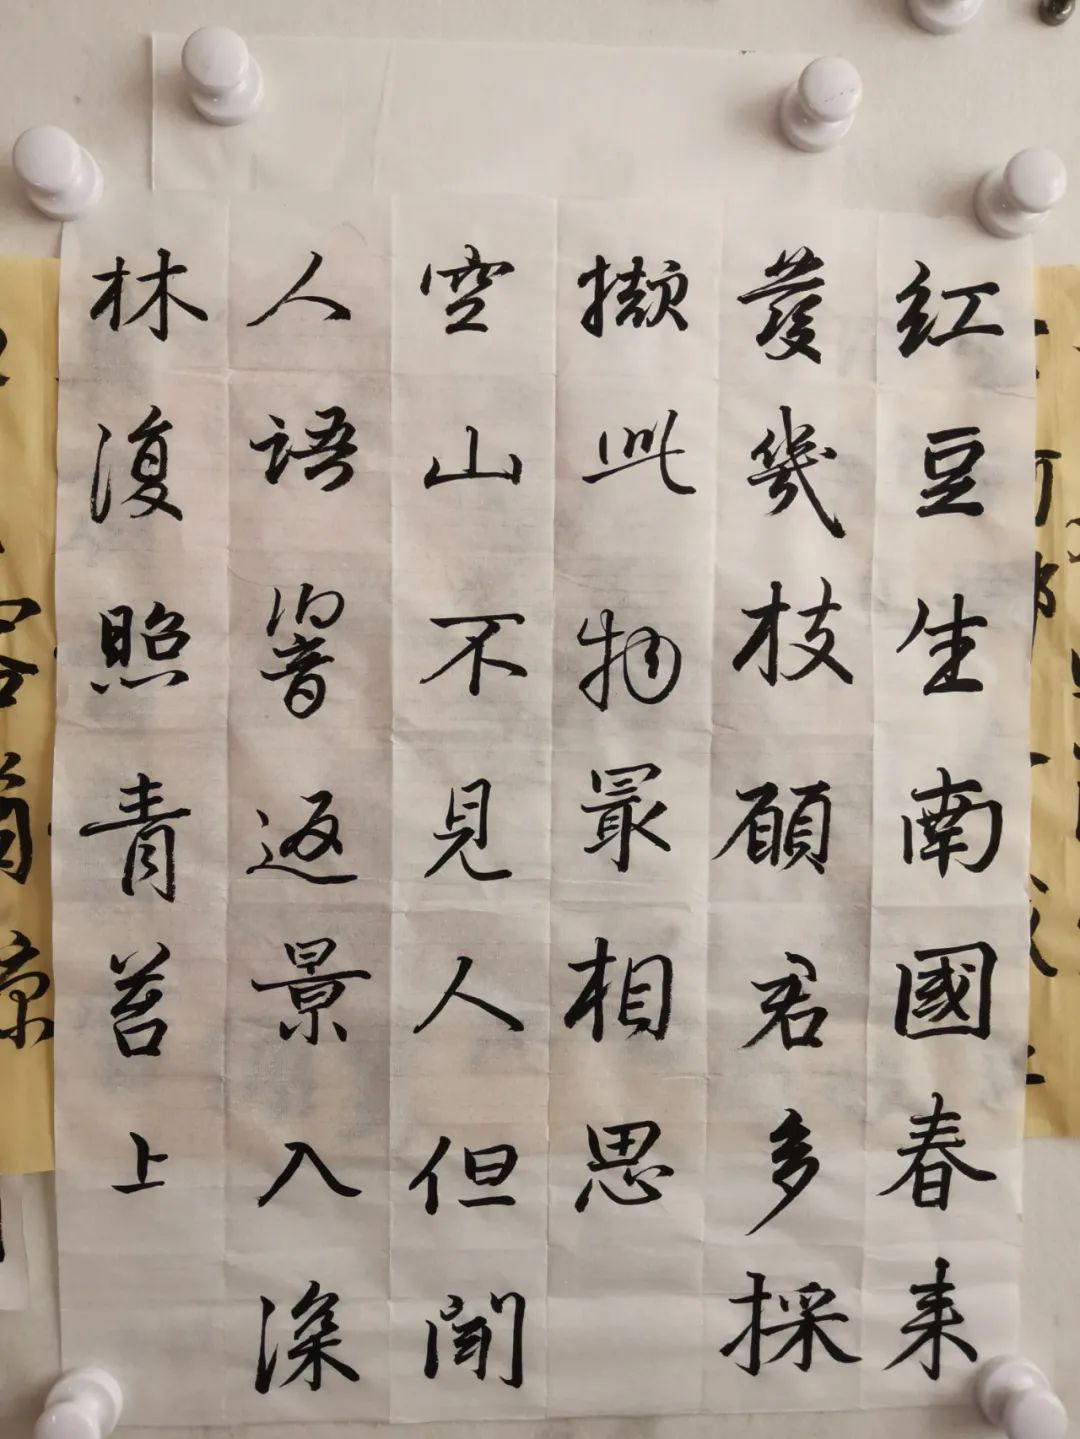 紅豆生南國春来
發幾枝願君多採
擷此物最相思
空山不見人但聞
人語響返景入深
林復照青苔上